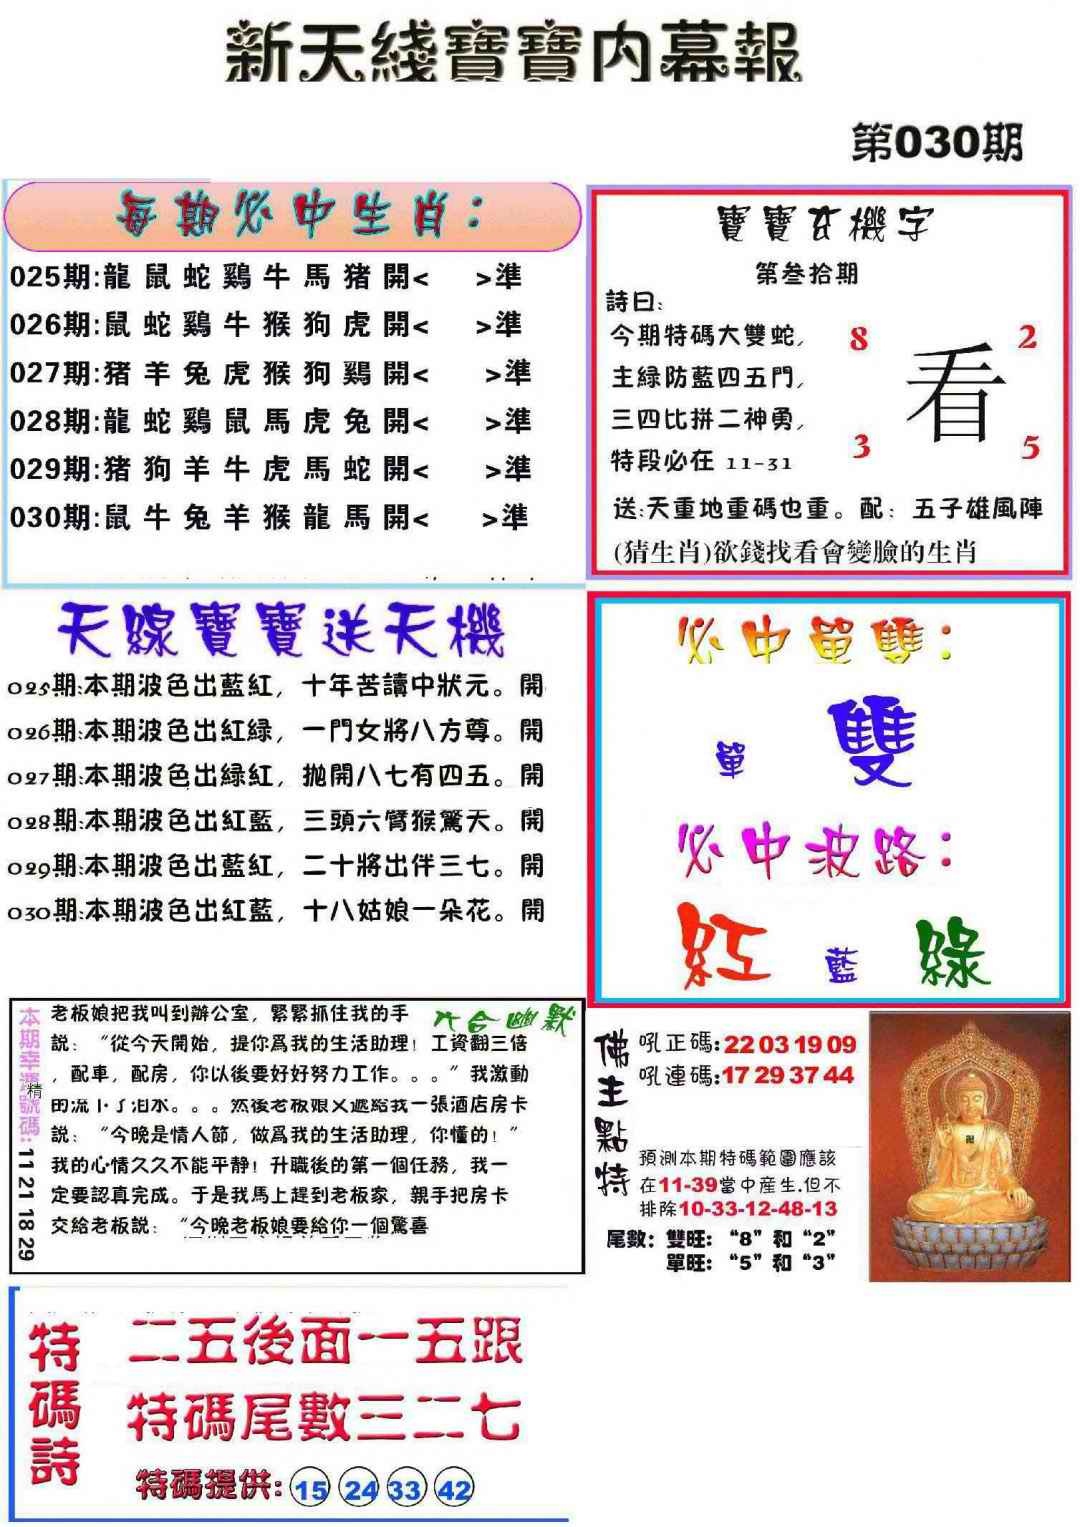 新天綫寶寶内幕報
第030期
每期必中生肖：
025期:龍鼠蛇鷄牛馬猪開< >準
026期:鼠蛇鷄牛猴狗虎開< >準
027期:猪羊兔虎猴狗鷄開< >準
028期:龍蛇鷄鼠馬虎兔開< >準
029期:猪狗羊牛虎馬蛇開< >準
030期:鼠牛兔羊猴龍馬開< >準
寶寶玄機字
第叁拾期
詩曰:
今期特碼大雙蛇,
主緑防藍四五門,
三四比拼二神勇,
特段必在 11-31
8 2
看
3 5
送:天重地重碼也重。配：五子雄風陣
(猜生肖)欲錢找看會變臉的生肖
天線寶寶送天機
025期:本期波色出藍紅，十年苦讀中狀元。開
026期:本期波色出紅緑，一門女將八方尊。開
027期:本期波色出緑紅，抛開八七有四五。開
028期:本期波色出紅藍，三頭六臂猴驚天。開
029期:本期波色出藍紅，二十將出伴三七。開
030期:本期波色出紅藍，十八姑娘一朵花。開
必中單雙：
單 雙
必中波路：
紅 藍 綠
六合幽默
本期幸運號碼:11 21 18 29
精
老板娘把我叫到辦公室，緊緊抓住我的手
説：“從今天開始，提你爲我的生活助理！工資翻三倍
，配車，配房，你以後要好好努力工作。。。”我激動
的流下了泪水。。。然後老板娘又遞給我一張酒店房卡
説：“今晚是情人節，做爲我的生活助理，你懂的！”
我的心情久久不能平静！升職後的第一個任務，我一
定要認真完成。于是我馬上趕到老板家，親手把房卡
交給老板説：“今晚老板娘要給你一個驚喜
佛主點特
吼正碼:22 03 19 09
吼連碼:17 29 37 44
預測本期特碼範圍應該
在11-39當中産生.但不
排除10-33-12-48-13
尾數：雙旺：“8”和“2”
單旺：“5”和“3”
特碼詩
二五後面一五跟
特碼尾數三二七
特碼提供: 15 24 33 42